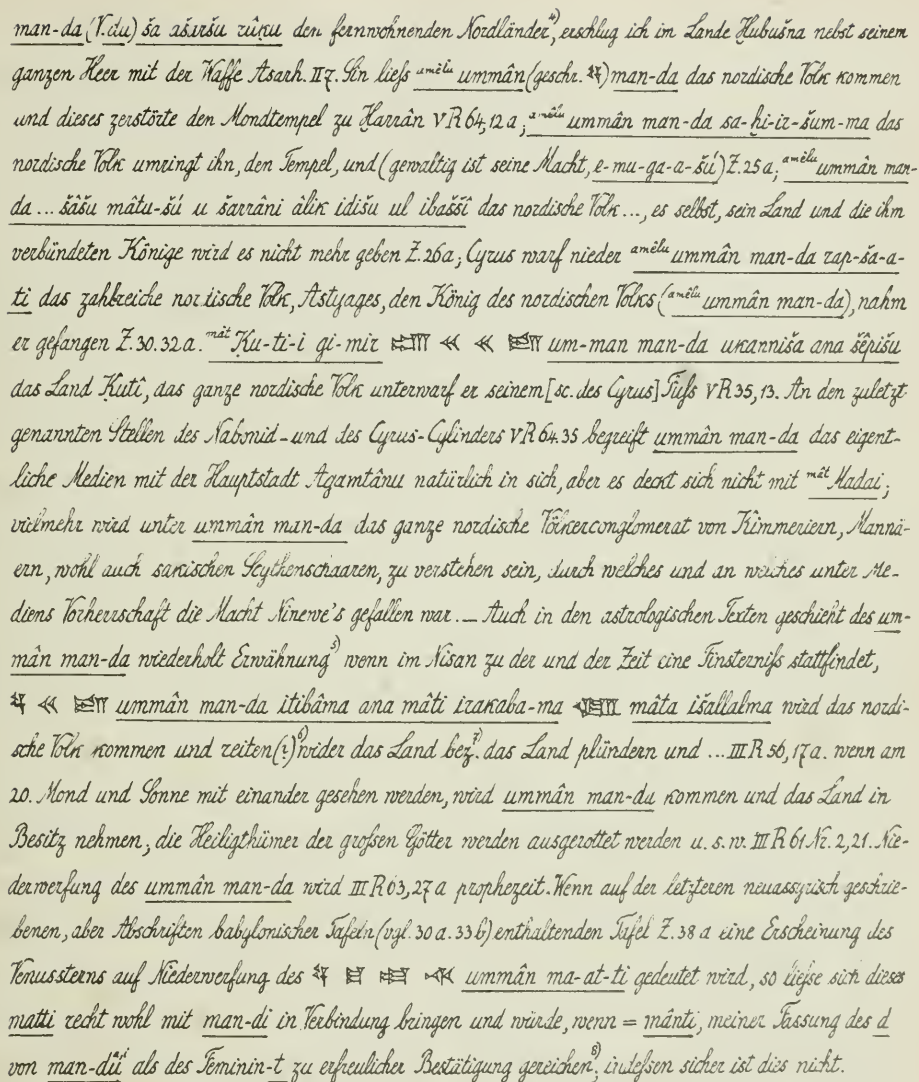 man-da (V. du) ša ašaršu rûḳu den fernwohnenden Nordländer⁴⁾, erschlug ich im Lande Ḫubušna nebst seinem
ganzen Heer mit der Waffe Asarh. II 7. Sin liefs ᵃᵐêˡᵘ ummân (geschr. 𒂟) man-da das nordische Volk kommen
und dieses zerstörte den Mondtempel zu Ḥarrân V R 64, 12 a; ᵃᵐêˡᵘ ummân man-da sa-ḫi-ir-šum-ma das
nordische Volk umringt ihn, den Tempel, und (gewaltig ist seine Macht, e-mu-ga-a-šú) Z. 25 a; ᵃᵐêˡᵘ ummân man-
da ... šâšu mâtu-šú u šarrâni âlik idišu ul ibašší das nordische Volk ..., es selbst, sein Land und die ihm
verbündeten Könige wird es nicht mehr geben Z. 26 a; Cyrus warf nieder ᵃᵐêˡᵘ ummân man-da rap-ša-a-
ti das zahlreiche nordische Volk, Astyages, den König des nordischen Volks (ᵃᵐêˡᵘ ummân man-da), nahm
er gefangen Z. 30. 32 a. ᵐâᵗ Ḳu-ti-i gi-mir um-man man-da ukanniša ana šêpišu
das Land Ḳutî, das ganze nordische Volk unterwarf er seinem [sc. des Cyrus] Fufs V R 35, 13. An den zuletzt
genannten Stellen des Nabonid- und des Cyrus-Cylinders V R 64. 35 begreift ummân man-da das eigent-
liche Medien mit der Hauptstadt Agamtânu natürlich in sich, aber es deckt sich nicht mit ᵐâᵗ Madai;
vielmehr wird unter ummân man-da das ganze nordische Völkerconglomerat von Kimmeriern, Mannä-
ern, wohl auch sakischen Scythenschaaren, zu verstehen sein, durch welches und an welches unter Me-
diens Vorherrschaft die Macht Ninewe's gefallen war. — Auch in den astrologischen Texten geschieht des um-
mân man-da wiederholt Erwähnung⁵⁾ wenn im Nisan zu der und der Zeit eine Finsternifs stattfindet,
ummân man-da itibâma ana mâti irakaba-ma mâta išallalma wird das nordi-
sche Volk kommen und reiten(?)⁶⁾ wider das Land bez.⁷⁾ das Land plündern und ... III R 56, 17 a. wenn am
20. Mond und Sonne mit einander gesehen werden, wird ummân man-du kommen und das Land in
Besitz nehmen, die Heiligthümer der grofsen Götter werden ausgerottet werden u. s. w. III R 61 Nr. 2, 21. Nie-
derwerfung des ummân man-da wird III R 63, 27 a prophezeit. Wenn auf der letzteren neuassyrisch geschrie-
benen, aber Abschriften babylonischer Tafeln (vgl. 30 a. 33 b) enthaltenden Tafel Z. 38 a eine Erscheinung des
Venussterns auf Niederwerfung des ummân ma-at-ti gedeutet wird, so liefse sich dieses
matti recht wohl mit man-di in Verbindung bringen und würde, wenn = mânti, meiner Fassung des d
von man-dú als des Feminin-t zu erfreulicher Bestätigung gereichen⁸⁾; indefsen sicher ist dies nicht.